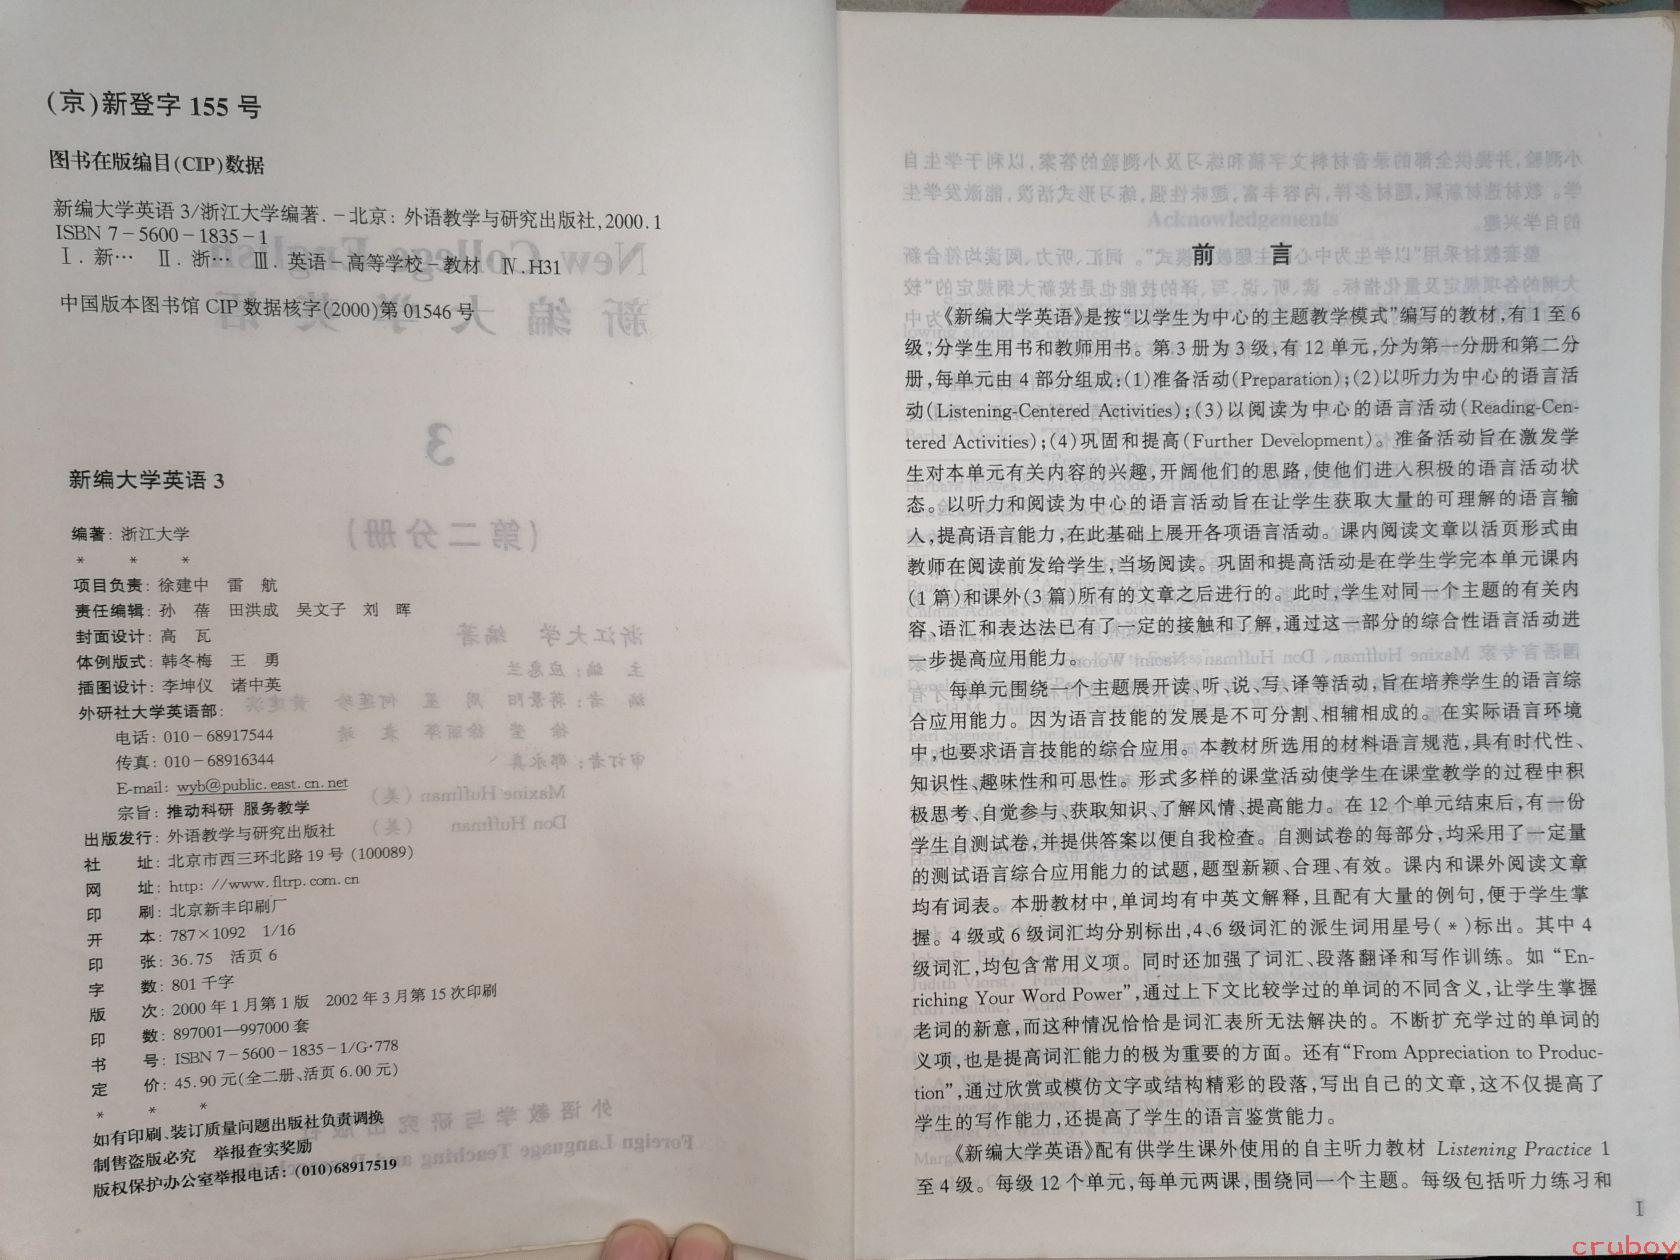 (京)新登字 155 号
图书在版编目(CIP)数据
新编大学英语 3/浙江大学编著.-北京:外语教学与研究出版社,2000.1
ISBN 7-5600-1835-1
Ⅰ.新… Ⅱ.浙… Ⅲ.英语-高等学校-教材 Ⅳ.H31
中国版本图书馆 CIP 数据核字(2000)第 01546 号
新编大学英语 3
编著: 浙江大学
* * *
项目负责: 徐建中 雷 航
责任编辑: 孙 蓓 田洪成 吴文子 刘 晖
封面设计: 高 瓦
体例版式: 韩冬梅 王 勇
插图设计: 李坤仪 诸中英
外研社大学英语部:
电话: 010-68917544
传真: 010-68916344
E-mail: wyb@public.east.cn.net
宗旨: 推动科研 服务教学
出版发行: 外语教学与研究出版社
社 址: 北京市西三环北路 19 号 (100089)
网 址: http: //www.fltrp.com.cn
印 刷: 北京新丰印刷厂
开 本: 787×1092 1/16
印 张: 36.75 活页 6
字 数: 801 千字
版 次: 2000 年 1 月第 1 版 2002 年 3 月第 15 次印刷
印 数: 897001—997000 套
书 号: ISBN 7-5600-1835-1/G·778
定 价: 45.90 元(全二册、活页 6.00 元)
* * *
如有印刷、装订质量问题出版社负责调换
制售盗版必究 举报查实奖励
版权保护办公室举报电话: (010)68917519
前 言
《新编大学英语》是按“以学生为中心的主题教学模式”编写的教材,有 1 至 6
级,分学生用书和教师用书。第 3 册为 3 级,有 12 单元,分为第一分册和第二分
册,每单元由 4 部分组成:(1)准备活动(Preparation);(2)以听力为中心的语言活
动(Listening-Centered Activities);(3)以阅读为中心的语言活动(Reading-Cen-
tered Activities);(4)巩固和提高(Further Development)。准备活动旨在激发学
生对本单元有关内容的兴趣,开阔他们的思路,使他们进入积极的语言活动状
态。以听力和阅读为中心的语言活动旨在让学生获取大量的可理解的语言输
入,提高语言能力,在此基础上展开各项语言活动。课内阅读文章以活页形式由
教师在阅读前发给学生,当场阅读。巩固和提高活动是在学生学完本单元课内
(1 篇)和课外(3 篇)所有的文章之后进行的。此时,学生对同一个主题的有关内
容、语汇和表达法已有了一定的接触和了解,通过这一部分的综合性语言活动进
一步提高应用能力。
每单元围绕一个主题展开读、听、说、写、译等活动,旨在培养学生的语言综
合应用能力。因为语言技能的发展是不可分割、相辅相成的。在实际语言环境
中,也要求语言技能的综合应用。本教材所选用的材料语言规范,具有时代性、
知识性、趣味性和可思性。形式多样的课堂活动使学生在课堂教学的过程中积
极思考、自觉参与、获取知识、了解风情、提高能力。在 12 个单元结束后,有一份
学生自测试卷,并提供答案以便自我检查。自测试卷的每部分,均采用了一定量
的测试语言综合应用能力的试题,题型新颖、合理、有效。课内和课外阅读文章
均有词表。本册教材中,单词均有中英文解释,且配有大量的例句,便于学生掌
握。4 级或 6 级词汇均分别标出,4、6 级词汇的派生词用星号(*)标出。其中 4
级词汇,均包含常用义项。同时还加强了词汇、段落翻译和写作训练。如 “En-
riching Your Word Power”,通过上下文比较学过的单词的不同含义,让学生掌握
老词的新意,而这种情况恰恰是词汇表所无法解决的。不断扩充学过的单词的
义项,也是提高词汇能力的极为重要的方面。还有“From Appreciation to Produc-
tion”,通过欣赏或模仿文字或结构精彩的段落,写出自己的文章,这不仅提高了
学生的写作能力,还提高了学生的语言鉴赏能力。
《新编大学英语》配有供学生课外使用的自主听力教材 Listening Practice 1
至 4 级。每级 12 个单元,每单元两课,围绕同一个主题。每级包括听力练习和
I
cruboy